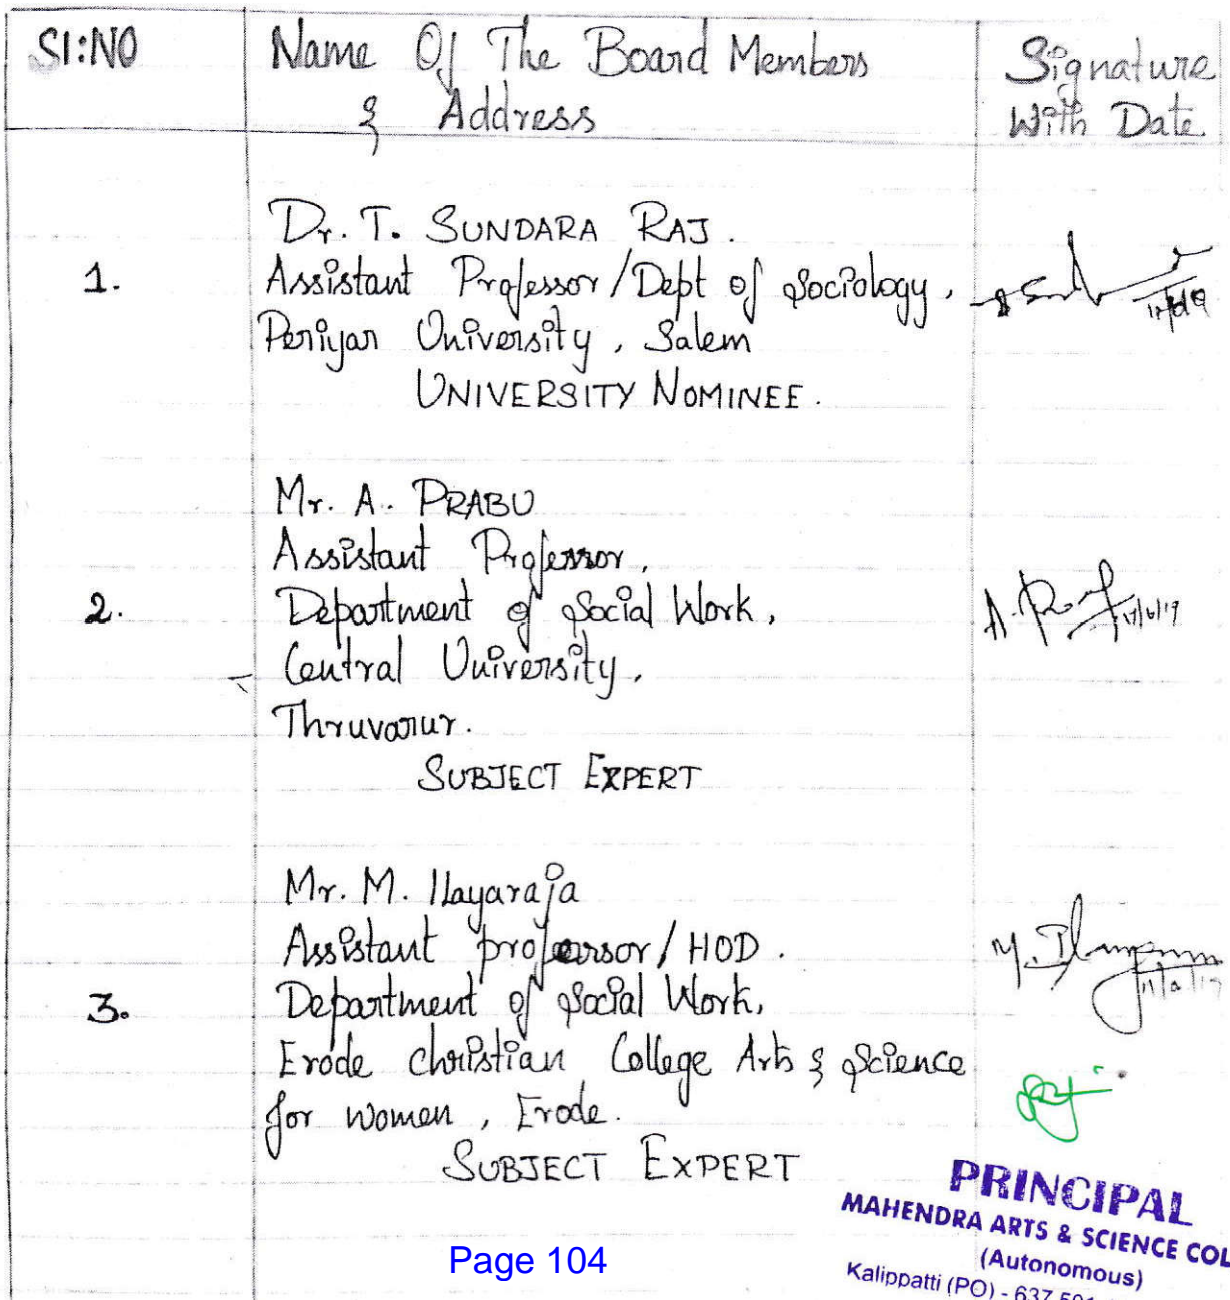 SI:NO
Name Of The Board Members
& Address
Signature
With Date
1.
Dr. T. SUNDARA RAJ.
Assistant Professor/Dept of Sociology,
Periyar University, Salem
UNIVERSITY NOMINEE.
2.
Mr. A. PRABU
Assistant Professor,
Department of Social Work,
Central University,
Thruvarur.
SUBJECT EXPERT
A.
17/6/19
3.
Mr. M. Ilayaraja
Assistant professor/HOD.
Department of Social Work,
Erode christian College Arts & Science
for women, Erode.
SUBJECT EXPERT
M.
PRINCIPAL
MAHENDRA ARTS & SCIENCE COL
(Autonomous)
Kalippatti (PO) - 637 501
Page 104